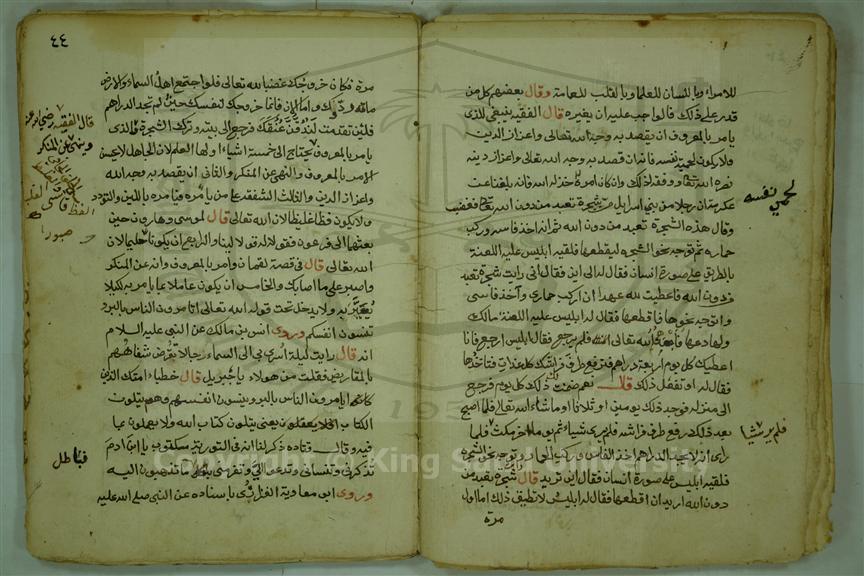 للامراء وباللسان للعلماء وبالقلب للعامة وقال بعضهم كل من
قدر على ذلك فالواجب عليه ان يغيره قال الفقيه ينبغي للذي
يامر بالمعروف ان يقصد به وجه الله تعالى واعزاز الدين
ولا يكون لحمية نفسه فانه ان قصد به وجه الله تعالى واعزاز دينه
نصره الله تعالى ووفقه لذلك وان كان امره لحمية خذله الله فانه بلغنا عن
عكرمة ان رجلا من بني اسرائيل مر بشجرة تعبد من دون الله تعالى فغضب
وقال هذه الشجرة تعبد من دون الله ثم انه اخذ فاسه وركب
حماره ثم توجه نحو الشجرة ليقطعها فلقيه ابليس عليه اللعنة
بالطريق على صورة انسان فقال له الى اين فقال اني رايت شجرة تعبد
من دون الله فاعطيت لله عهدا ان اركب حماري وآخذ فاسي
واتوجه نحوها فاقطعها فقال له ابليس عليه اللعنة مالك
ولها دعها فابعدهم الله تعالى فلم يرجع فقال ابليس ارجع فانا
اعطيك كل يوم اربعة دراهم فترفع طرف فراشك كل غداة فتاخذها
فقال له او تفعل ذلك قال نعم ضمنت ذلك كل يوم فرجع
الى منزله فوجد ذلك يومين او ثلاثا او ما شاء الله تعالى فلما اصبح
بعد ذلك رفع طرف فراشه فلم ير شياء ثم يوما اخر مكث فلما
راى انه لا يجد الدراهم اخذ الفاس وركب الحمار وتوجه نحو الشجرة
فلقيه ابليس على صورة انسان فقال اين تريد قال شجرة تعبد من
دون الله اريد ان اقطعها فقال له ابليس لا تطيق ذلك اما اول
مرة
لحمي نفسه
فلم ير شيئا
٤٤
مرة فكان خروجك غضبا لله تعالى فلو اجتمع اهل السماء والارض
ما قدروا وك واما الان فانما خروجك لنفسك حيث لم تجد الدراهم
فلئن تقدمت لندقن عنقك فرجع الى بيته وترك الشجرة والذى
يامر بالمعروف يحتاج الى خمسة اشياء اولها العلم لان الجاهل لا يحسن
الامر بالمعروف والنهي عن المنكر والثاني ان يقصد به وجه الله
واعزاز الدين والثالث الشفقة على من يامره فيامره باللين والتودد
ولا يكون فظا غليظا لان الله تعالى قال لموسى وهارون حين
بعثهما الى فرعون فقولا له قولا لينا والرابع ان يكون حليما لان
الله تعالى قال في قصة لقمان وامر بالمعروف وانه عن المنكر
واصبر على ما اصابك والخامس ان يكون عاملا بما يامر به لكيلا
يعير به ولا يدخل تحت قوله الله تعالى اتامرون الناس بالبر و
تنسون انفسكم وروى انس بن مالك عن النبي عليه السلام
انه قال رايت ليلة اسري بي الى السماء رجالا يقرض شفاههم
بالمقاريض فقلت من هولاء يا جبريل قال خطباء امتك الذين
كانوا يامرون الناس بالبر وينسون انفسهم وهم يتلون
الكتاب افلا يعقلون يعني يتلون كتاب الله ولا يعملون بما
فيه وقال قتادة ذكر لنا ان في التورية مكتوب يا ابن ادم
تذكرني وتنساني وتدعو الي وتفر مني ما تذهبون اليه
وروى ابن معاوية الفزاري باسناده عن النبي صلى الله عليه
قال الفقيه رضي
وينهى عن المنكر
الفظ قاسي القلب
صبورا
فباطل
Copyright © King Saud University
195